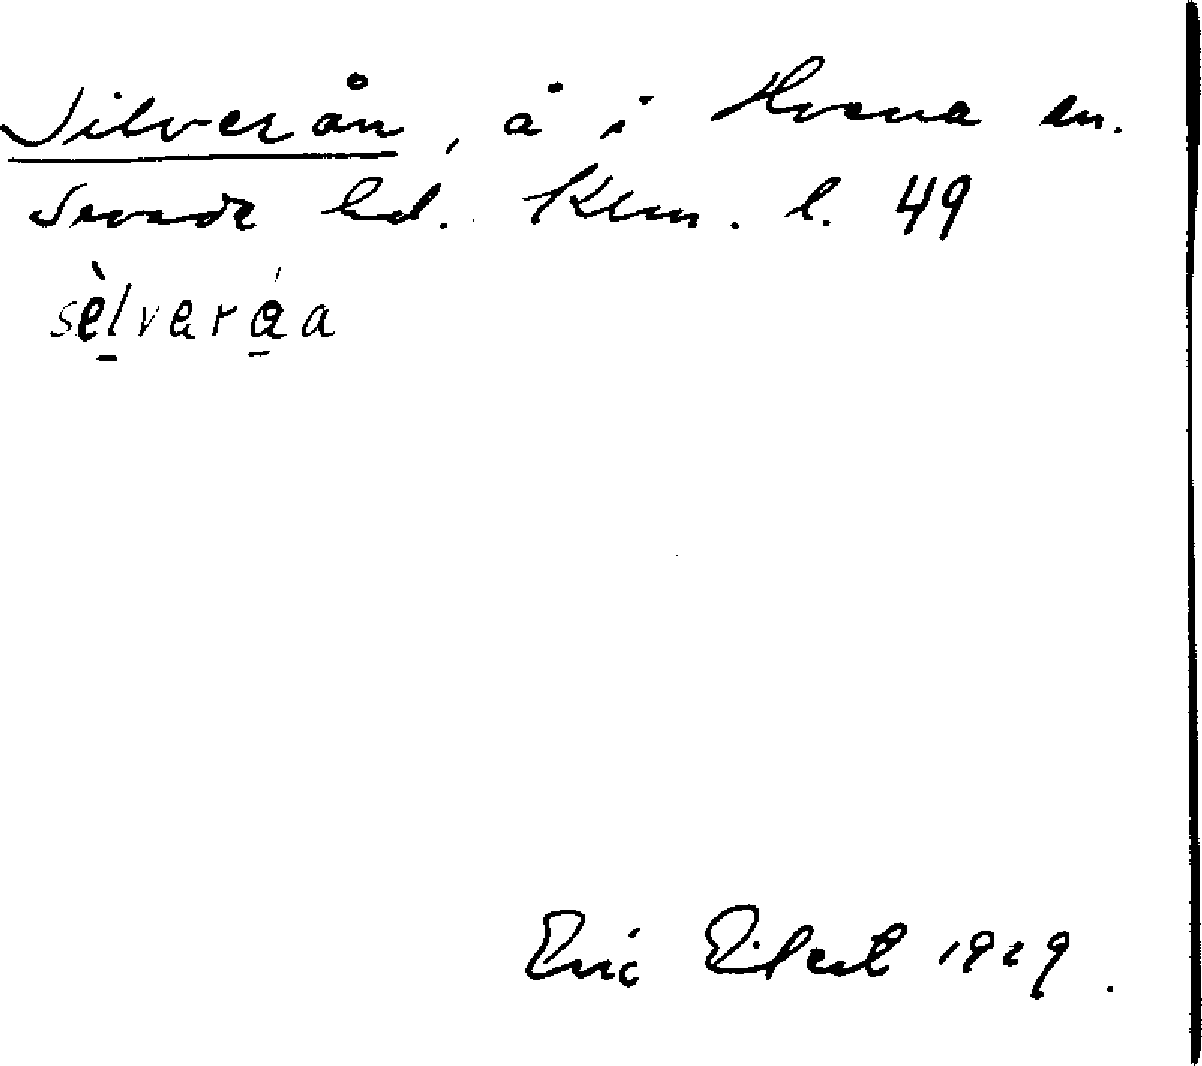 Silverån, å i Hvena sn.
Sevede hd. Klm. l. 49
sèlveråa
Eric Elfert 1929.